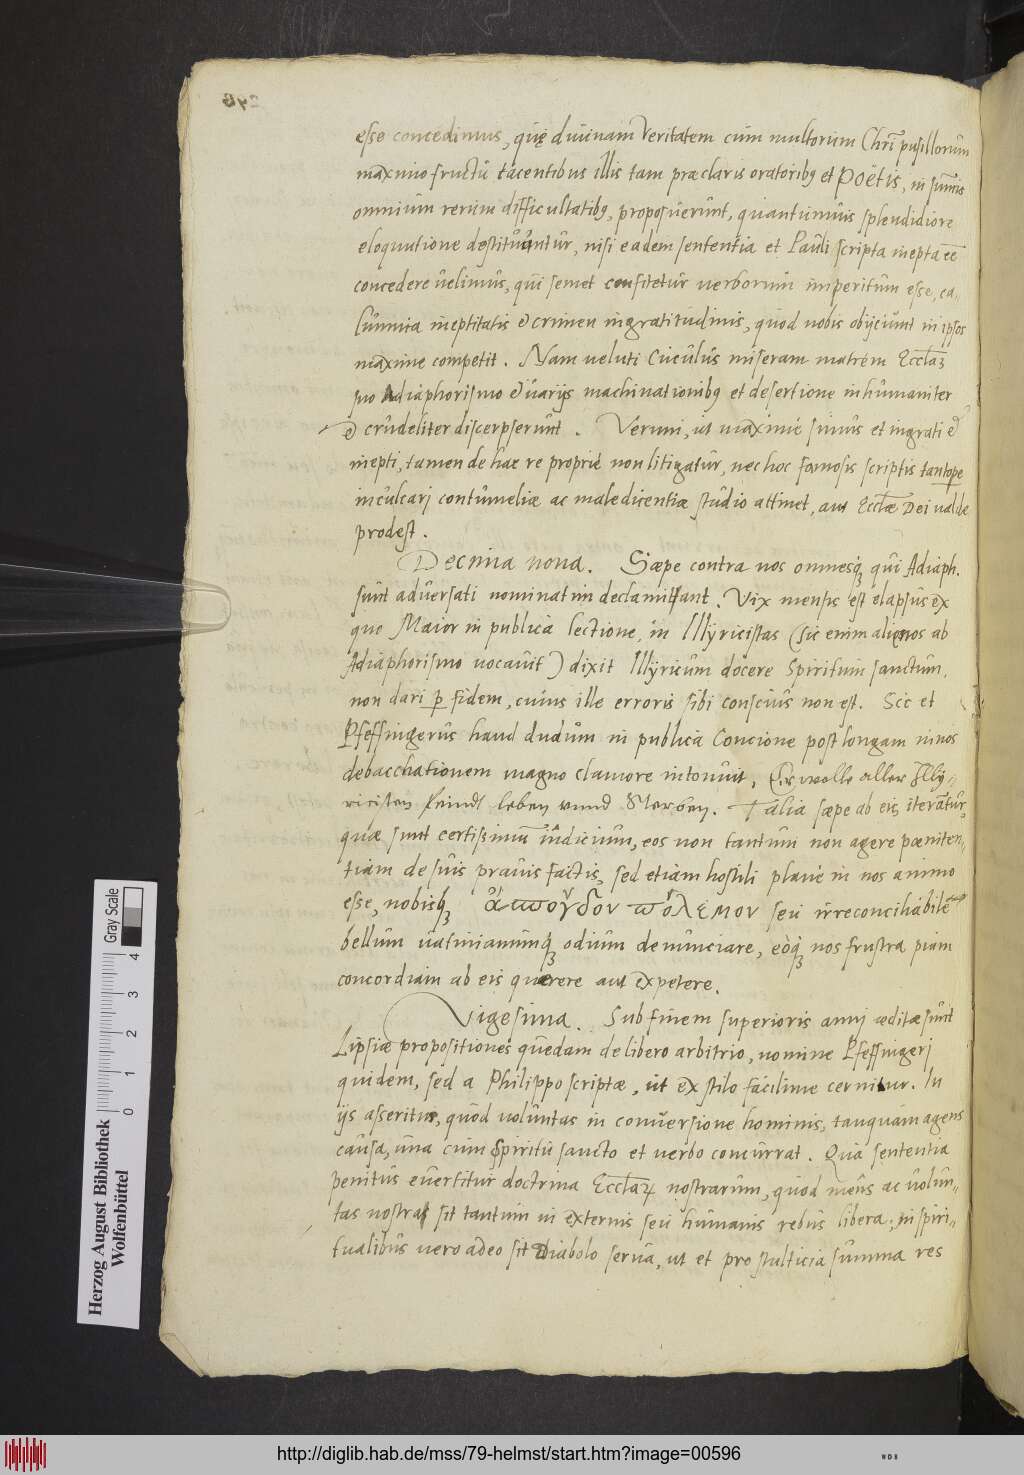 esse concedimus, quę diuinam Veritatem cùm multorum Chri pusillorum
maximo fructu tacentibus illis tam præclaris oratoribꝫ et Poëtis, in sumis
omnium rerum difficultatibꝫ, proposuerunt, quantumuis splendidiore
eloquutione destituantur, nisi eadem sententia et Pauli scripta inepta eē
concedere uelimus, qui semet confitetur uerborum imperitum esse, ca,
lumnia ineptitatis & crimen ingratitudinis, quod nobis obijciunt in ipsos
maxime competit. Nam ueluti Cuculus miseram matrem Ecclaꝫ
suo Adiaphorismo & uarijs machinationibꝫ et desertione inhumaniter
& crudeliter discerpserunt. Verum, ut maximè simus et ingrati &
inepti, tamen de hac re propriè non litigatur, nec hoc famosis scriptis tantope
inculcari contumeliæ ac maledicentiæ studio attinet, aut Ecclæ Dei ualde
prodest.
Decima nona. Sæpe contra nos omnesqꝫ qui Adiaph.
sunt aduersati nominatim declamitant. Vix mensis est elapsus ex
quo Maior in publica lectione, in Illyricistas (sic enim alienos ab
Adiaphorismo uocauit) dixit Illyricum docere Spiritum sanctum,
non dari ꝑ fidem, cuius ille erroris sibi conscius non est. Sic et
Pfeffingerus haud dudum in publica Concione post longam in nos
debacchationem magno clamore intonuit, Er wolle aller Illy-
ricisten feindt leben vnnd Sterben. Talia sæpe ab eis iterantur,
quæ sunt certissimum iudicium, eos non tantum non agere pœniten-
tiam de suis prauis factis, sed etiam hostili planè in nos animo
esse, nobisqꝫ ἄσπουδον πόλεμον seu irreconciliabile
bellum uatinianumqꝫ odium denunciare, eòqꝫ nos frustra piam
concordiam ab eis quærere aut expetere.
Vigesima. Sub finem superioris anni æditæ sunt
Lipsiæ propositiones quædam de libero arbitrio, nomine Pfeffingeri
quidem, sed a Philippo scriptæ, ut ex stilo facilime cernitur. In
ijs asseritur, quòd uoluntas in conuersione hominis, tanquam agens
causa, una cum Spiritu sancto et uerbo concurrat. Qua sententia
penitus euertitur doctrina Ecclaꝝ nostrarum, quod mens ac uolun-
tas nostra sit tantum in externis seu humanis rebus libera, in spiri-
tualibus uero adeo sit Diabolo serua, ut et pro stulticia summa res
Herzog August Bibliothek
Wolfenbüttel
Gray Scale
0 1 2 3 4
http://diglib.hab.de/mss/79-helmst/start.htm?image=00596